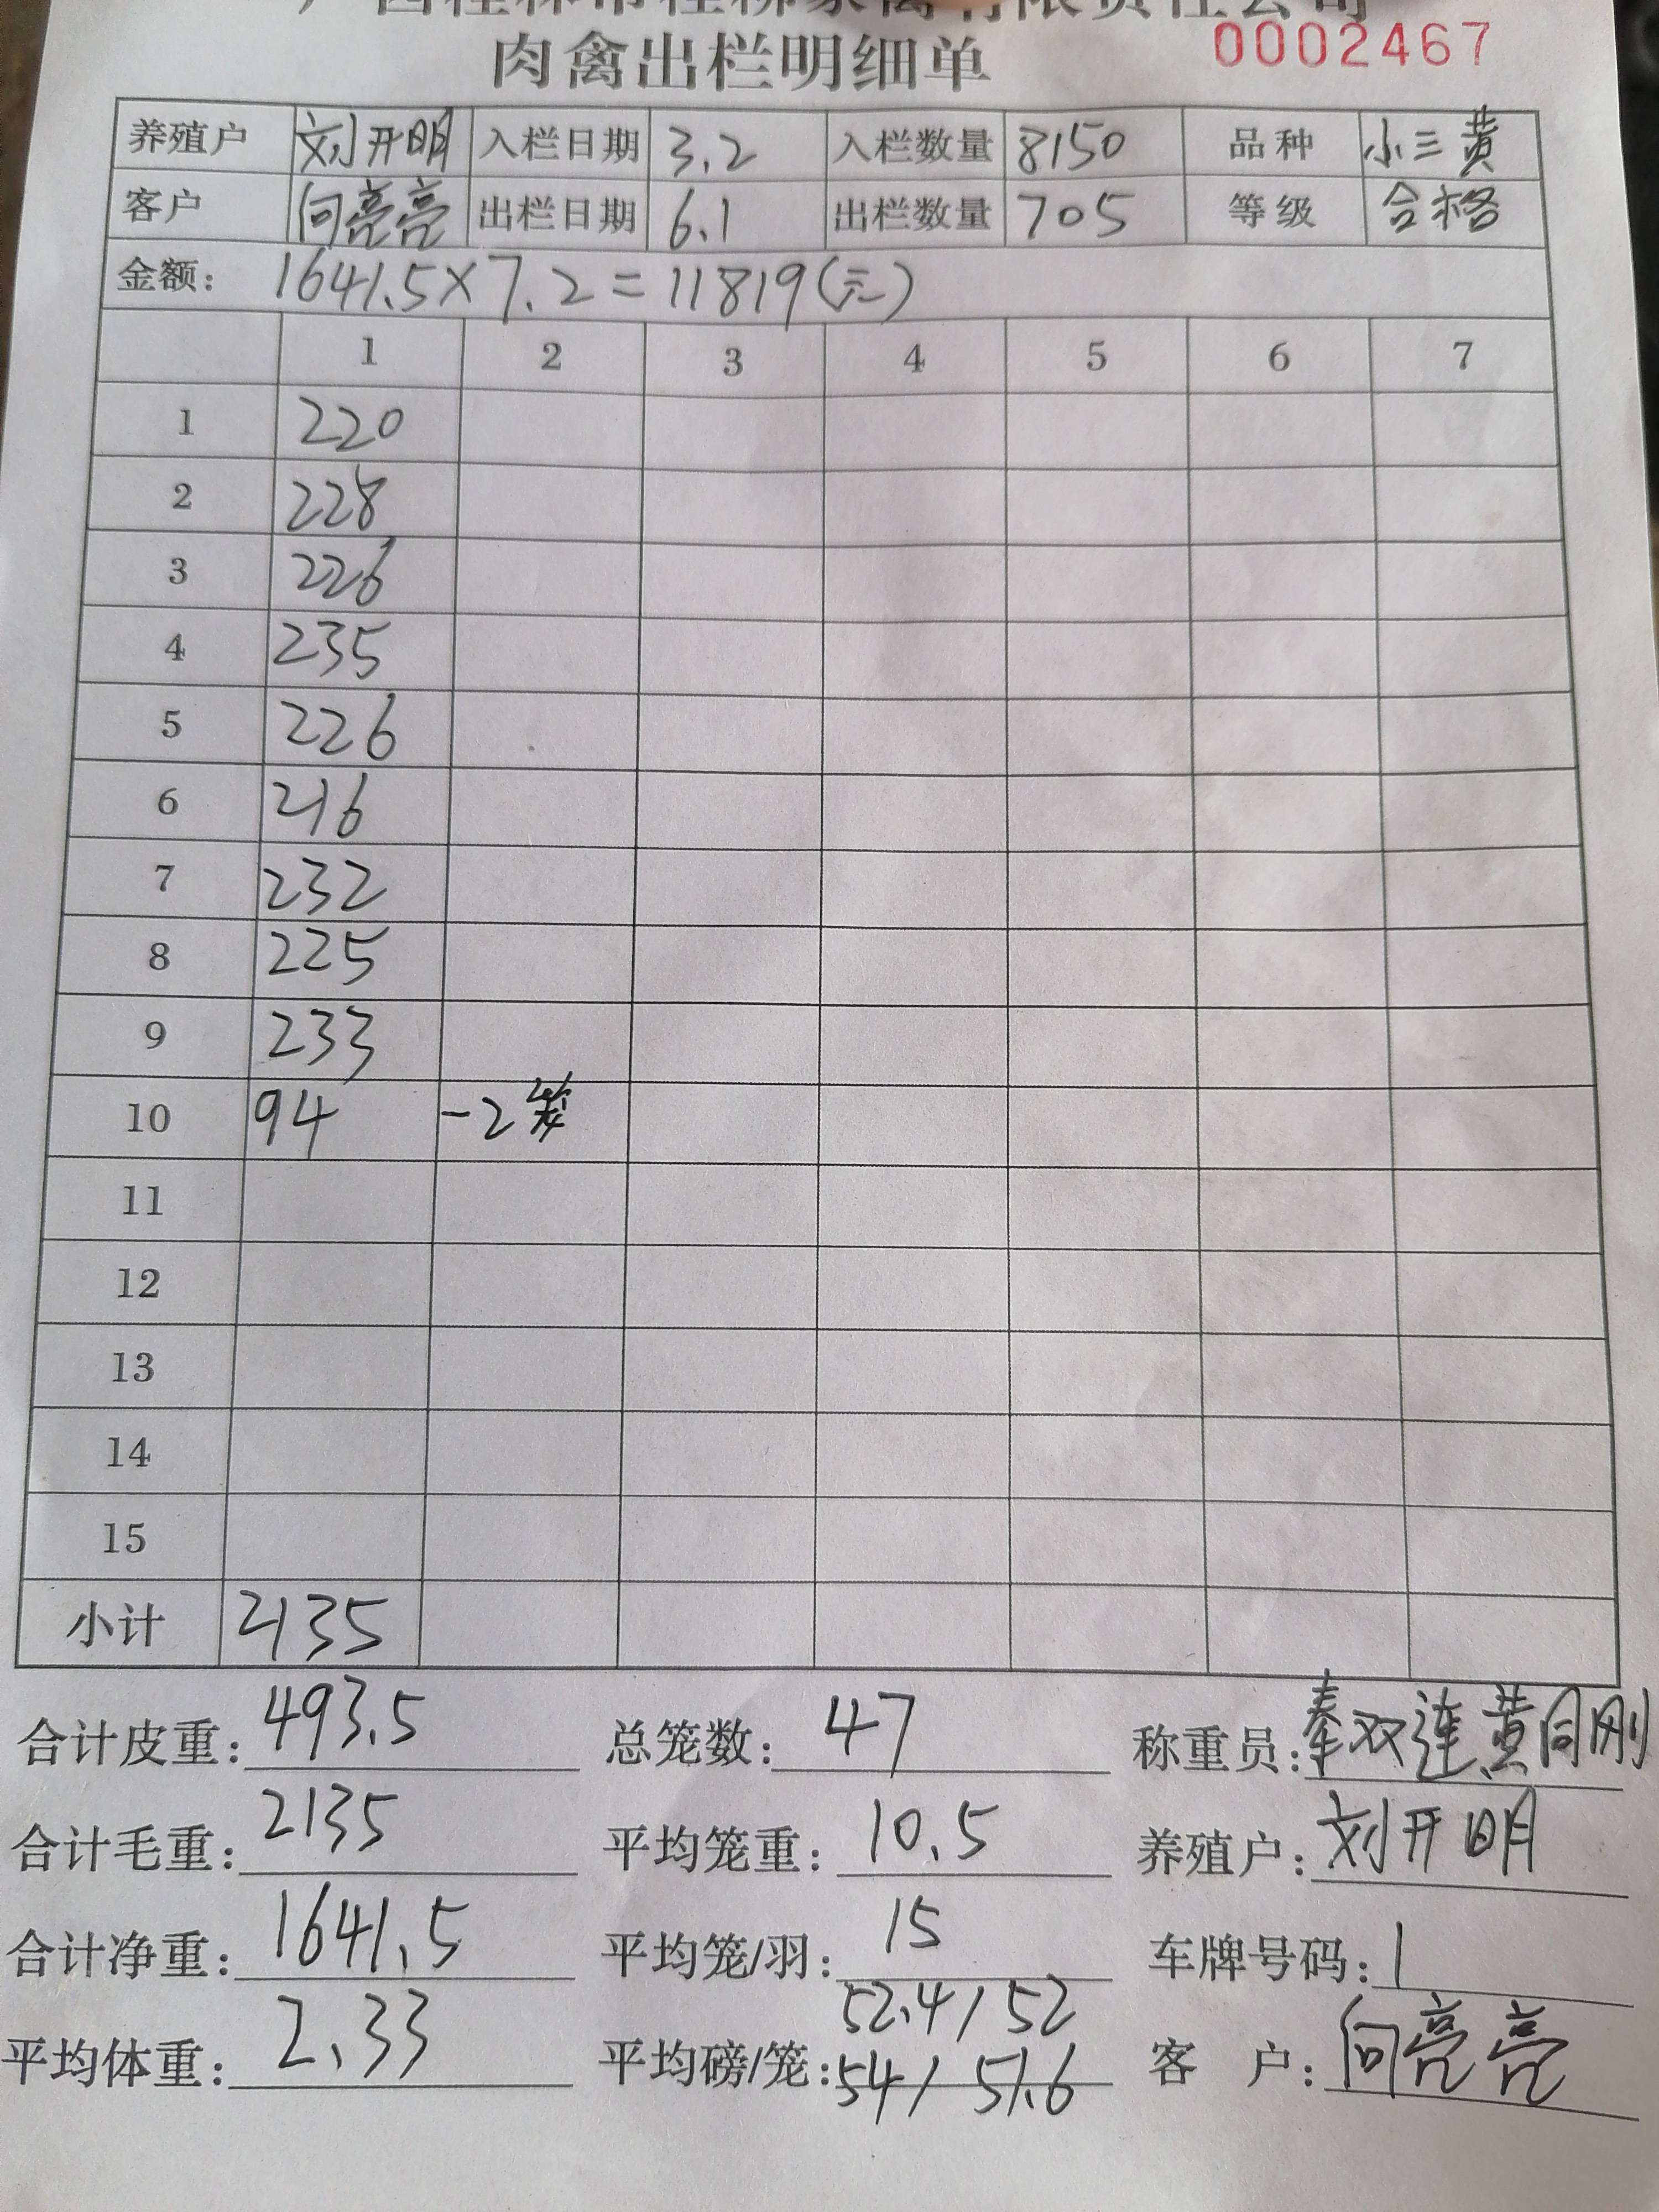 广西桂林市桂柳家禽有限责任公司
肉禽出栏明细单 0002467
养殖户 刘开明 入栏日期 3.2 入栏数量 8150 品种 小三黄
客户 向亮亮 出栏日期 6.1 出栏数量 705 等级 合格
金额: 1641.5×7.2=11819(元)
1 2 3 4 5 6 7
1 220
2 228
3 226
4 235
5 226
6 216
7 232
8 225
9 233
10 94 -2笼
11
12
13
14
15
小计 2135
合计皮重: 493.5 总笼数: 47 称重员: 奉双连 黄同刚
合计毛重: 2135 平均笼重: 10.5 养殖户: 刘开明
合计净重: 1641.5 平均笼/羽: 15 车牌号码: 1
平均体重: 2.33 平均磅/笼: 52.4/52 54/51.6 客户: 向亮亮